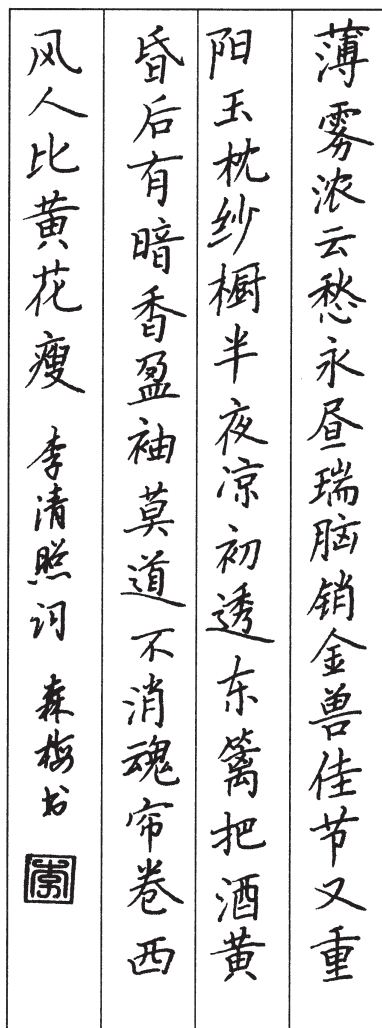 薄雾浓云愁永昼瑞脑销金兽佳节又重
阳玉枕纱橱半夜凉初透东篱把酒黄
昏后有暗香盈袖莫道不消魂帘卷西
风人比黄花瘦 李清照词 森梅书